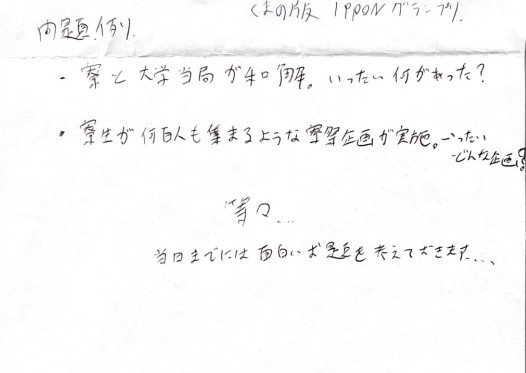 くまの版 IPPONグランプリ
内題例).
・寮と大学当局が和解。いったい何があった?
・寮生が何百人も集まるような寮祭企画が実施。いったい
どんな企画?
等々...
当日までには面白いお題を考えておきます....